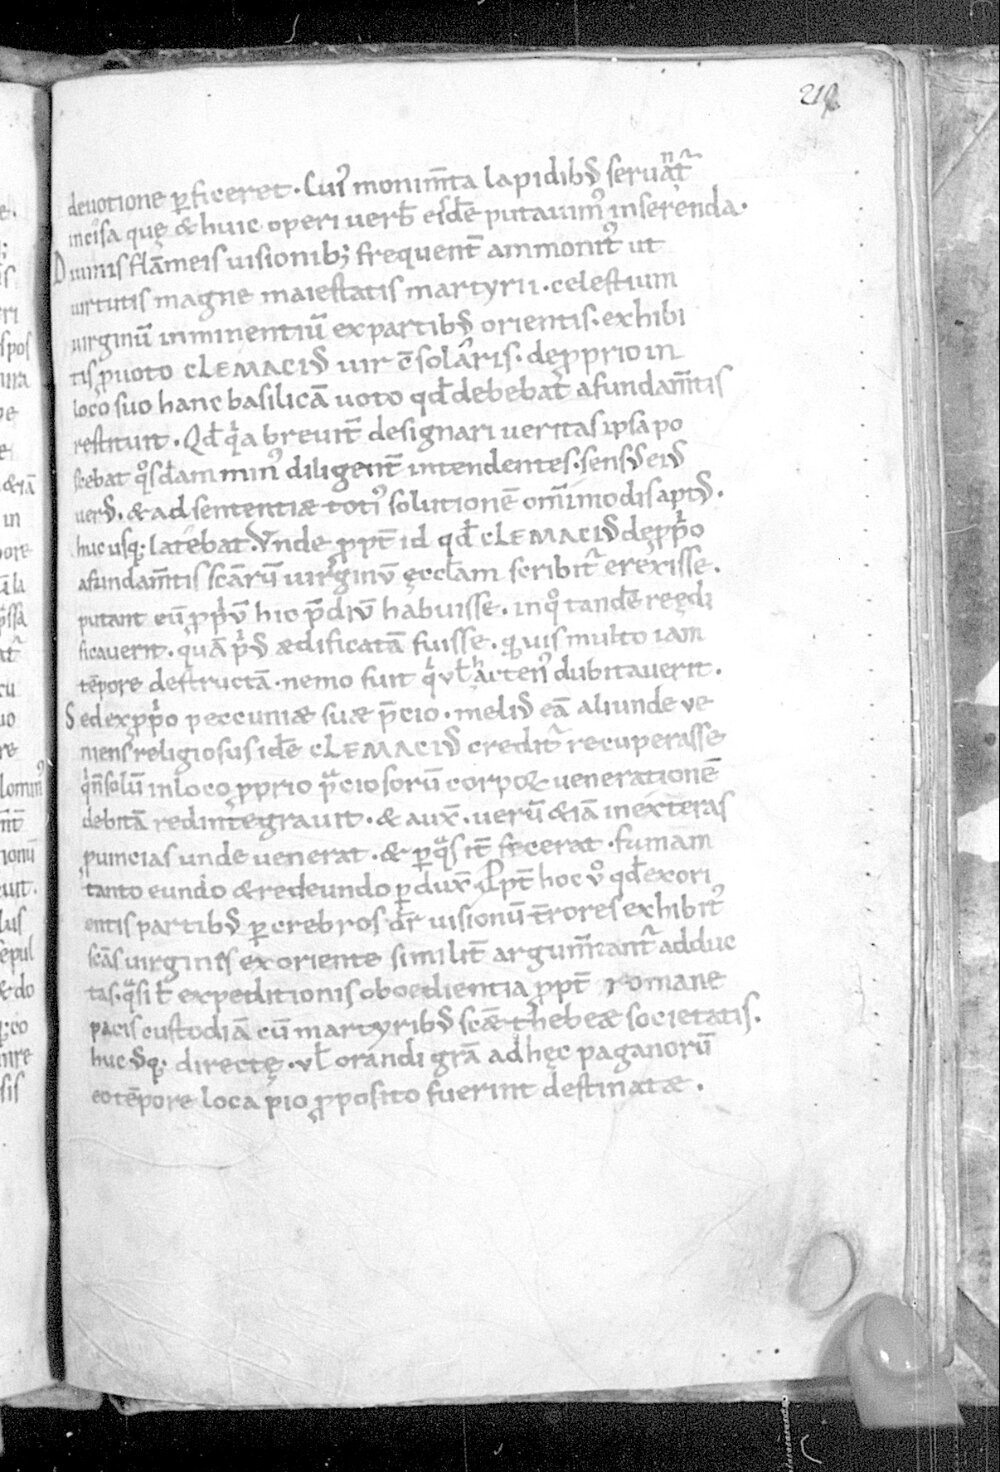 219
deuotione ꝑficeret. Cuiꝰ monim̅ta lapidibꝰ seruant᷑
incisa quę & huic operi uerb̅ eisdē putauimꝰ inserenda.
Diuinis flāmeis uisionib; frequent̅ ammonitꝰ ut
uirtutis magne maiestatis martyrii. celestium
uirginū inminentiū expartibꝰ orientis. exhibi
tis ꝓuoto CLEMACIꝰ uir c̅ solaris. deꝓprio in
loco suo hanc basilicā uoto qd̅ debebat afundam̅tis
restituit. Qd̅ qͥa breuit̅ designari ueritas ipsa po
scebat qͦsdam minꝰ diligent̅ intendentes. sensꝰ eiꝰ
uerꝰ. & ad sententiæ totiꝰ solutionē om̅imodis aptꝰ.
huc usq; latebat. Vnde ꝓpt̅ id qd̅ CLEMACIꝰ deꝓpͥo
afundam̅tis scārū uirginū ęccl̅am scribit᷑ erexisse.
putant eū ꝓpͥū hic p̅diū habuisse. inqͦ tandē reędi
ficauerit. quā pͥꝰ ædificatā fuisse. quis multo iam
tēpore destructā. nemo fuit qͥ ul̅ hacten̅ꝰ dubitauerit.
Sed exꝓpͥo peccuniæ suæ p̅cio. meliꝰ eā aliunde ue
niens religiosus idē CLEMACIꝰ credit᷑ recuperasse
qͥ n̅ solū inloco ꝓprio p̅ciosorū corpoꝝ uenerationē
debitā redintegrauit. & aux̅. uerū & iā inexteras
ꝓuincias unde uenerat. & ꝑ qͣs it̅ fecerat. fumam
tanto eundo & redeundo ꝑdux̅. Ꝓpt̅ hoc uͦ qd̅ exori
entis partibꝰ ꝑ crebros dr̅ uisionū t̅rores exhibitꝰ
scās uirgines ex oriente similit̅ argum̅tant᷑ adduc
tas. qͣsi t̅ expeditionis oboedientia ꝓpt̅ romane
pacis custodiā cū martyribꝰ scæ̅ thebeæ societatis.
huc usq; directę. ul̅ orandi grā ad hęc paganorū
eo tēpore loca pio ꝓposito fuerint destinatæ.